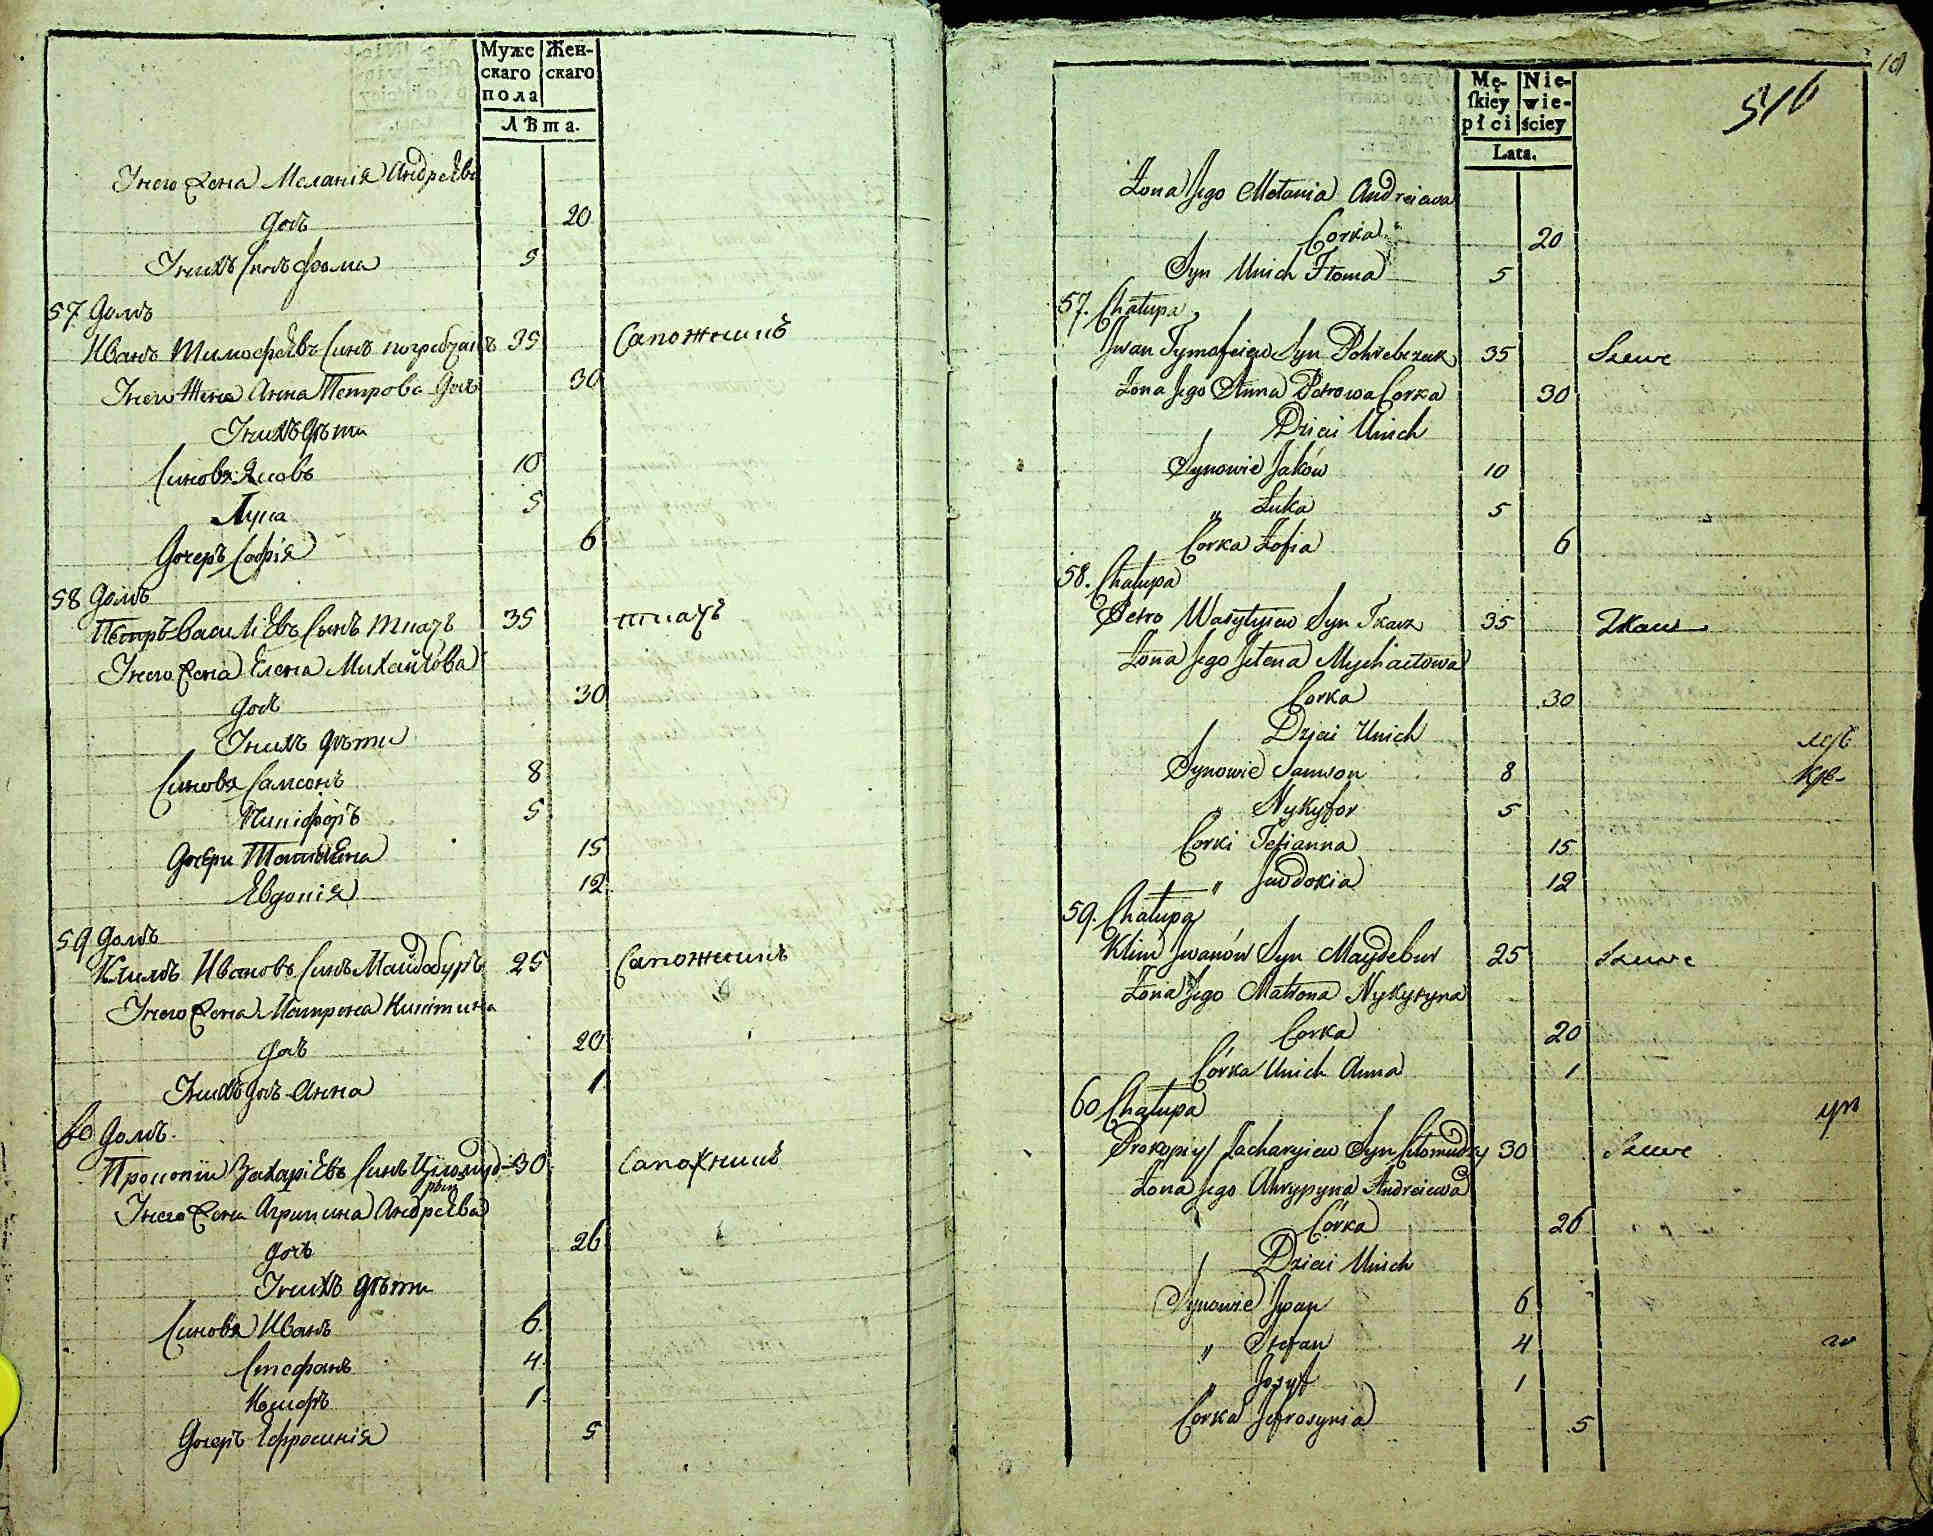 Муже
скаго
пола
Жен-
скаго
Лѣта.
Унего Жена Меланія Андреѣва
дочь 20
Унихъ Синъ Фома 5
57 Домъ
Иванъ Тимофѣевъ Синъ Погребнякъ 35 Сапожникъ
Унего Жена Анна Петрова Дочь 30
Унихъ Дѣти
Синовя Яковъ 10
Лука 5
Дочеръ Софія 6
58 Домъ
Петръ Василіевъ Сынъ Ткачъ 35 ткачъ
Унего Жена Елена Михайлова
дочь 30
Унихъ дѣти
Синовя Самсонъ 8
Никіфоръ 5
Дочери Татіяна 15
Евдокія 12
59 Домъ
Климъ Ивановъ Синъ Майдабуръ 25 Сапожникъ
Унего Жена Матрона Никітина
дочь 20
Унихъ дочь Анна 1
60 Домъ
Прокопій Захаріевъ Синъ Цѣломуд-
рый 30 Сапожникъ
Унего Жена Агрипина Андреева
дочь 26
Унихъ дѣти
Синовя Иванъ 6
Стефанъ 4
Иосифъ 1
Дочеръ Ефросинія 5
10
Mę-
ſkiey
płci
Nie-
wie-
ściey
Lata.
Żona Jego Mełania Andreiewa
Corka 20
Syn Unich Ftoma 5
57. Chałupa
Jwan Tymofeiew Syn Pohrebczuk 35 Szewc
Żona Jego Anna Petrowa Corka 30
Dzieci Unich
Synowie Jaków 10
„ Łuka 5
Corka Zofia 6
58. Chałupa
Petro Wasylyiew Syn Tkacz 35 Tkacz
Żona Jego Jełena Mychaiłowa
Corka 30
Dzieci Unich
Synowie Samson 8
„ Nykyfor 5
Corki Tetianna 15
„ Jewdokia 12
59. Chałupa
Klim Jwanów Syn Maydebur 25 Szewc
Żona Jego Matrona Nykytyna
Corka 20
Córka Unich Anna 1
60 Chałupa
Prokopiy Zacharyiew Syn Cełomudry 30 Szewc
Żona Jego Ahrypyna Andreiewa
Córka 26
Dzieci Unich
Synowie Jwan 6
„ Stefan 4
„ Josyf 1
Corka Jefrosynia 5